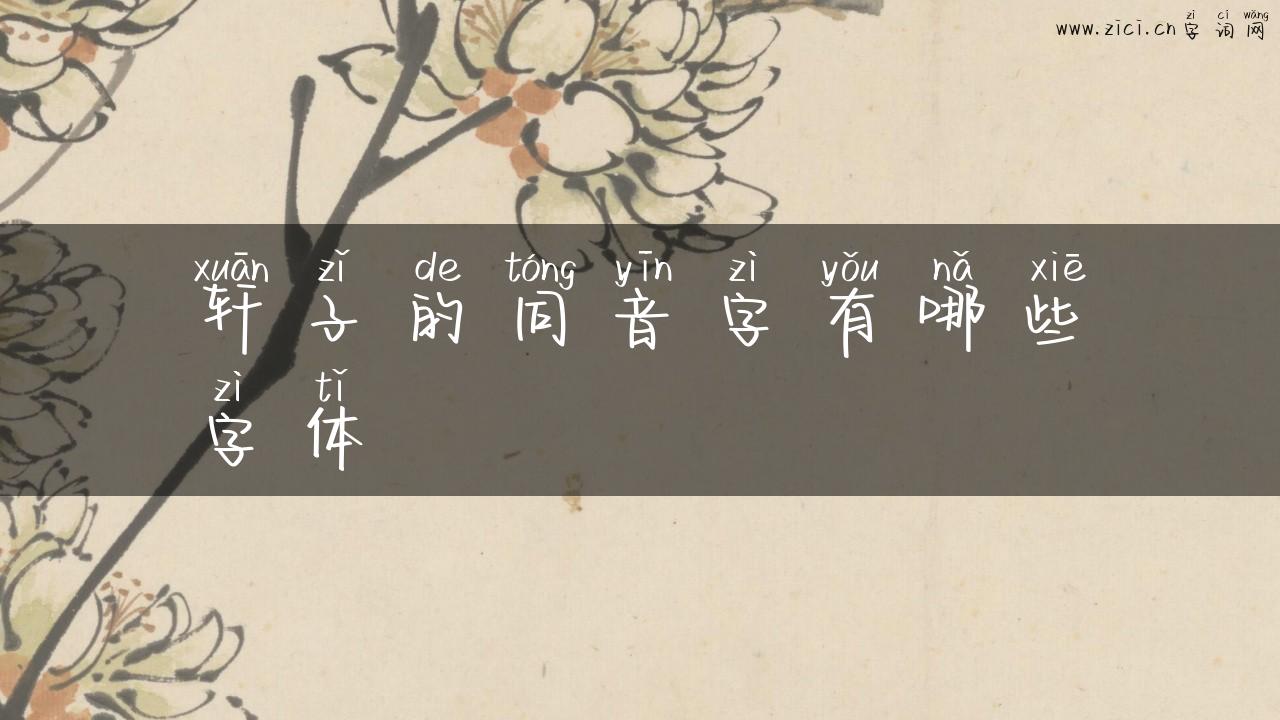 zì cí wǎng
www.zici.cn 字 词 网
xuān zǐ de tóng yīn zì yǒu nǎ xiē
轩 子 的 同 音 字 有 哪 些
zì tǐ
字 体